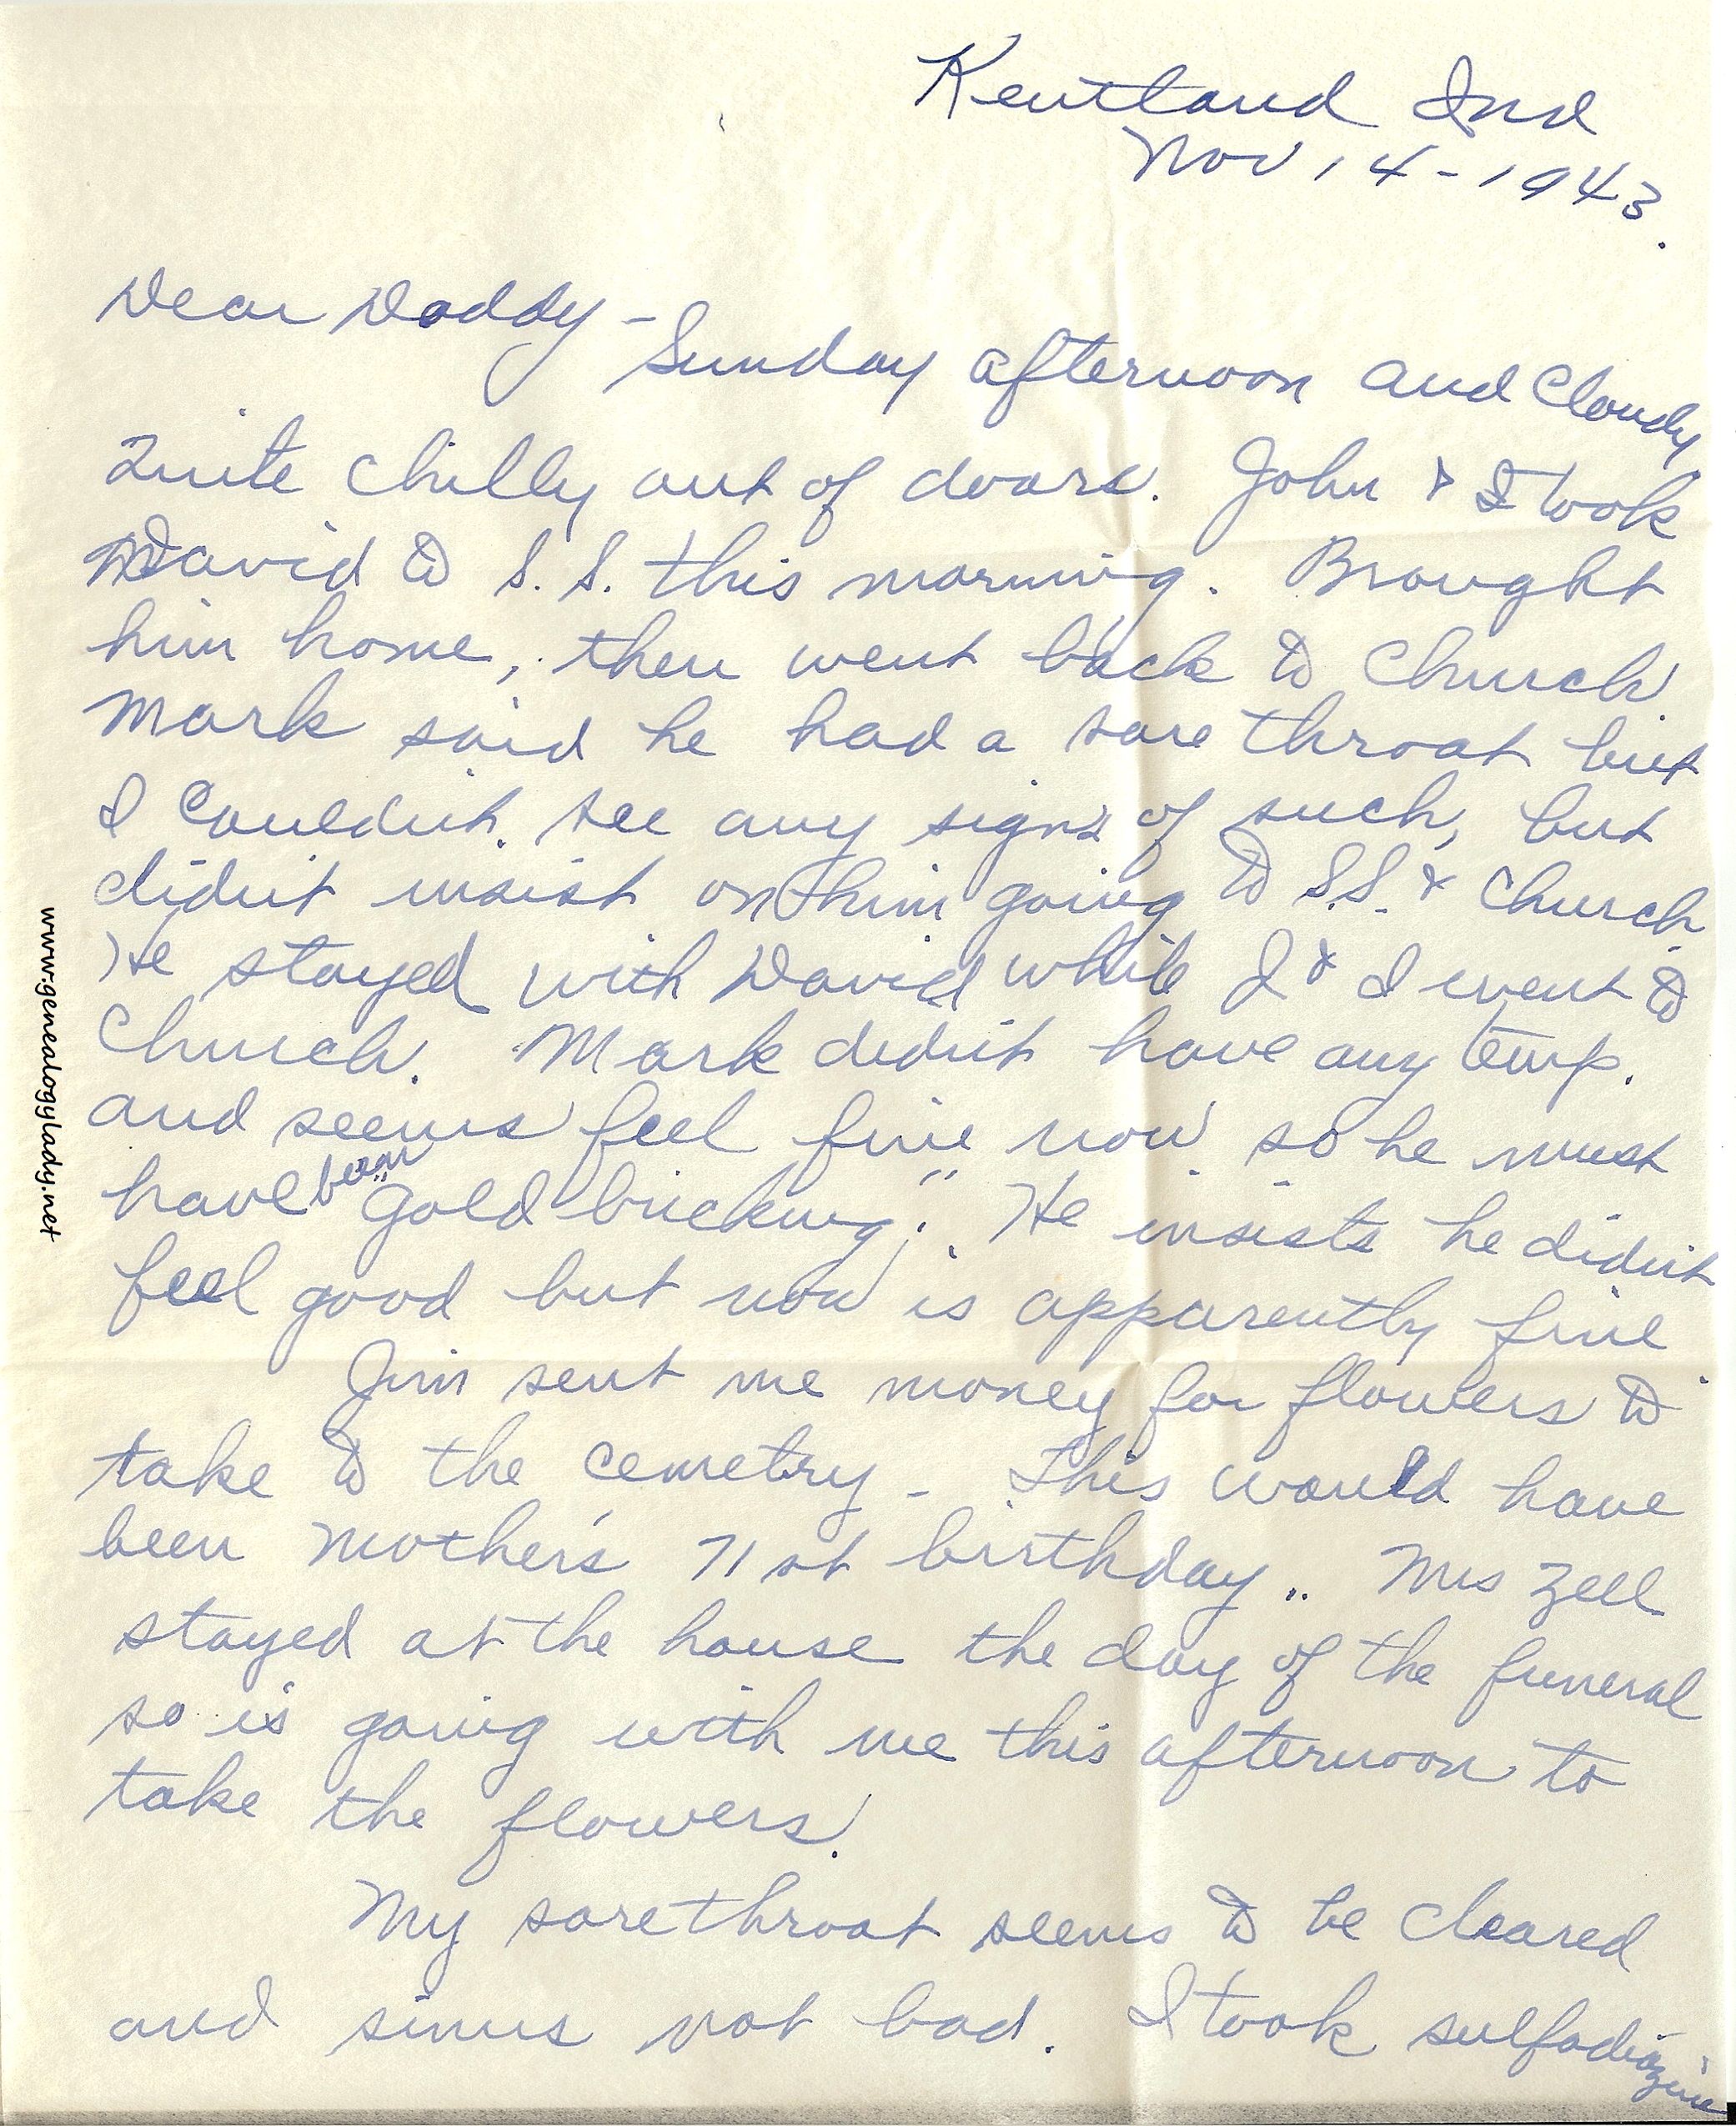 Kentland Ind
Nov 14-1943.
Dear Daddy -
Sunday afternoon and Cloudy
Quite chilly out of doors. John & I took
David to S. S. this morning. Brought
him home, then went back to Church.
Mark said he had a sore throat but
I couldn't see any signs of such, but
didn't insist on him going to S.S. & Church.
He stayed with David while J & I went to
Church. Mark didn't have any temp.
and seems feel fine now so he must
have been "gold bricking". He insists he didn't
feel good but now is apparently fine
Jim sent me money for flowers to
take to the cemetry - This would have
been Mother's 71st birthday.. Mrs Zell
stayed at the house the day of the funeral
so is going with me this afternoon to
take the flowers.
My sore throat seems to be cleared
and sinus not bad. I took sulfadiazine
www.genealogylady.net